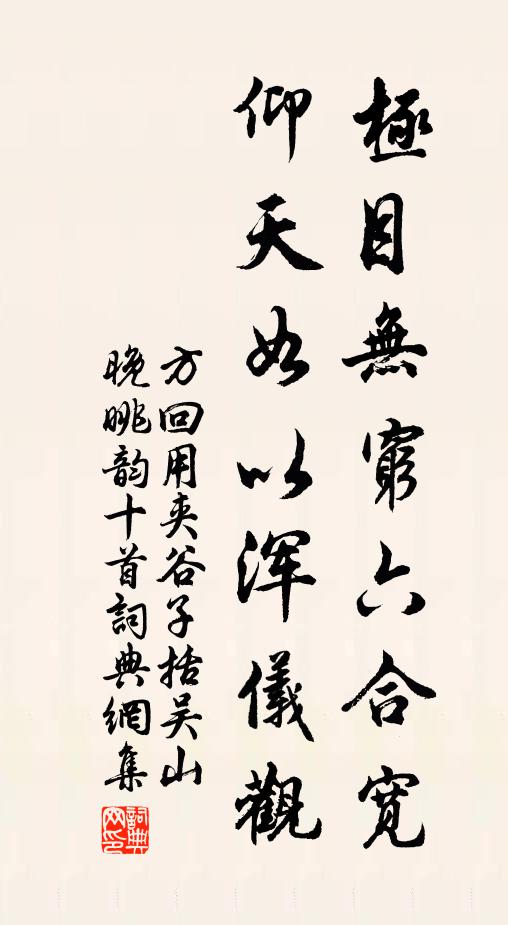 極目無窮六合寬
仰天如以浑儀觀
方回用夹谷子括吴山
晚眺韵十首詞典網集
詞典網印